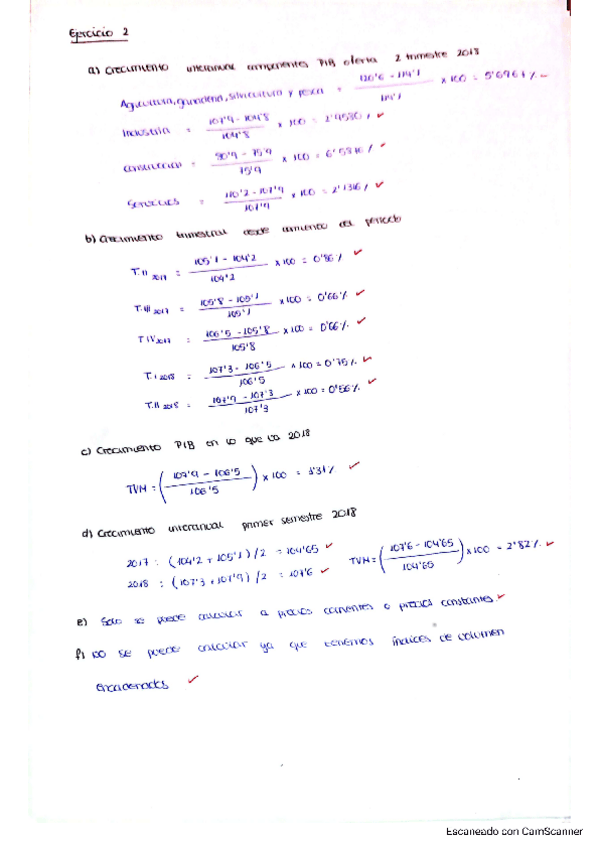 Ejercicio 2
a) Crecimiento interanual componentes PIB oferta 2 trimestre 2018
Agricultura, ganadería, silvicultura y pesca = (120'6 - 114'1) / 114'1 × 100 = 5'6967% ✓
Industria = (107'9 - 104'8) / 104'8 × 100 = 2'9580% ✓
Construcción = (80'9 - 75'9) / 75'9 × 100 = 6'5876% ✓
Servicios = (110'2 - 107'9) / 107'9 × 100 = 2'1316% ✓
b) Crecimiento trimestral desde comienzo del periodo
T.II 2017 = (105'1 - 104'2) / 104'2 × 100 = 0'86% ✓
T.III 2017 = (105'8 - 105'1) / 105'1 × 100 = 0'66% ✓
T.IV 2017 = (106'5 - 105'8) / 105'8 × 100 = 0'66% ✓
T.I 2018 = (107'3 - 106'5) / 106'5 × 100 = 0'75% ✓
T.II 2018 = (107'9 - 107'3) / 107'3 × 100 = 0'56% ✓
c) Crecimiento PIB en lo que va 2018
TVM = ((107'9 - 106'5) / 106'5) × 100 = 1'31% ✓
d) Crecimiento interanual primer semestre 2018
2017 : (104'2 + 105'1) / 2 = 104'65 ✓
2018 : (107'3 + 107'9) / 2 = 107'6 ✓
TVM = ((107'6 - 104'65) / 104'65) × 100 = 2'82% ✓
e) Solo se puede calcular a precios corrientes o precios constantes. ✓
f) no se puede calcular ya que tenemos índices de volumen
encadenados ✓
Escaneado con CamScanner